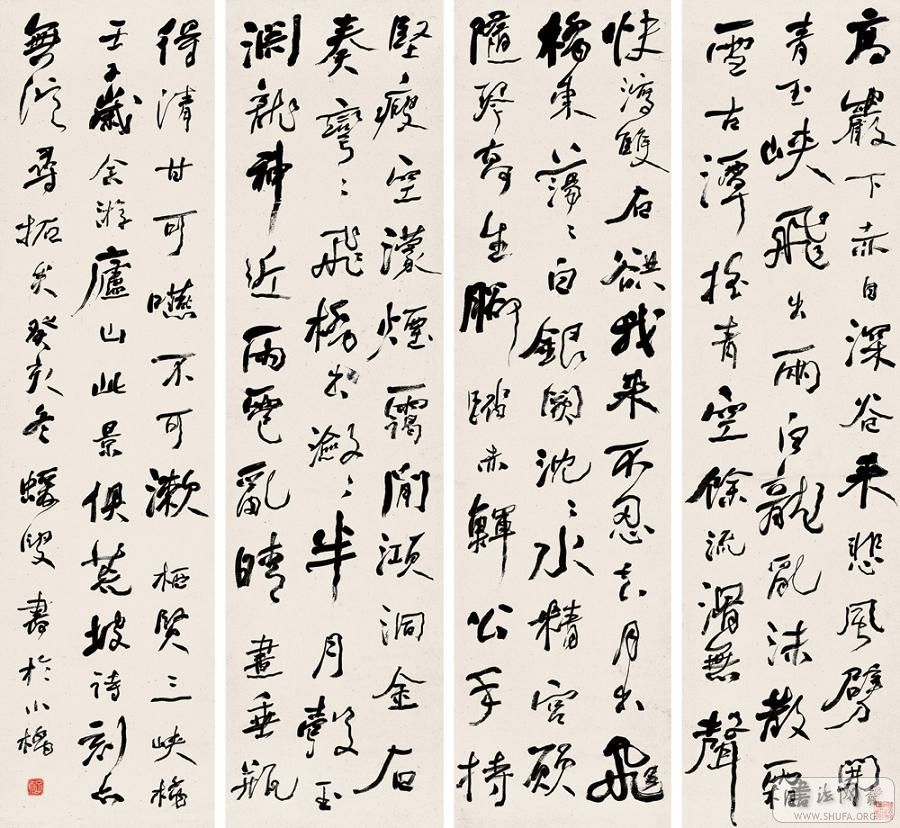 高巖下赤日深谷来悲風劈開
青玉峽飛出兩白龍亂沫散霜
雪古潭搖青空餘流滑無聲
快瀉雙石谼我来不忍去月出飛
橋東蕩〻白銀闕沈〻水精宮願
隨琴高生腳踏赤鯶公手持
堅瘦空濛煙靄間澒洞金石
奏彎〻飛橋出瀲〻半月彀玉
淵龍神近雨雹亂晴晝垂瓶
得清甘可嚥不可漱 栖賢三峽橋
壬子歲余游廬山此景俱荒坡詩刻亦
無從尋拓矣癸亥冬蝯叟書於小橋
WWW.SHUFA.ORG